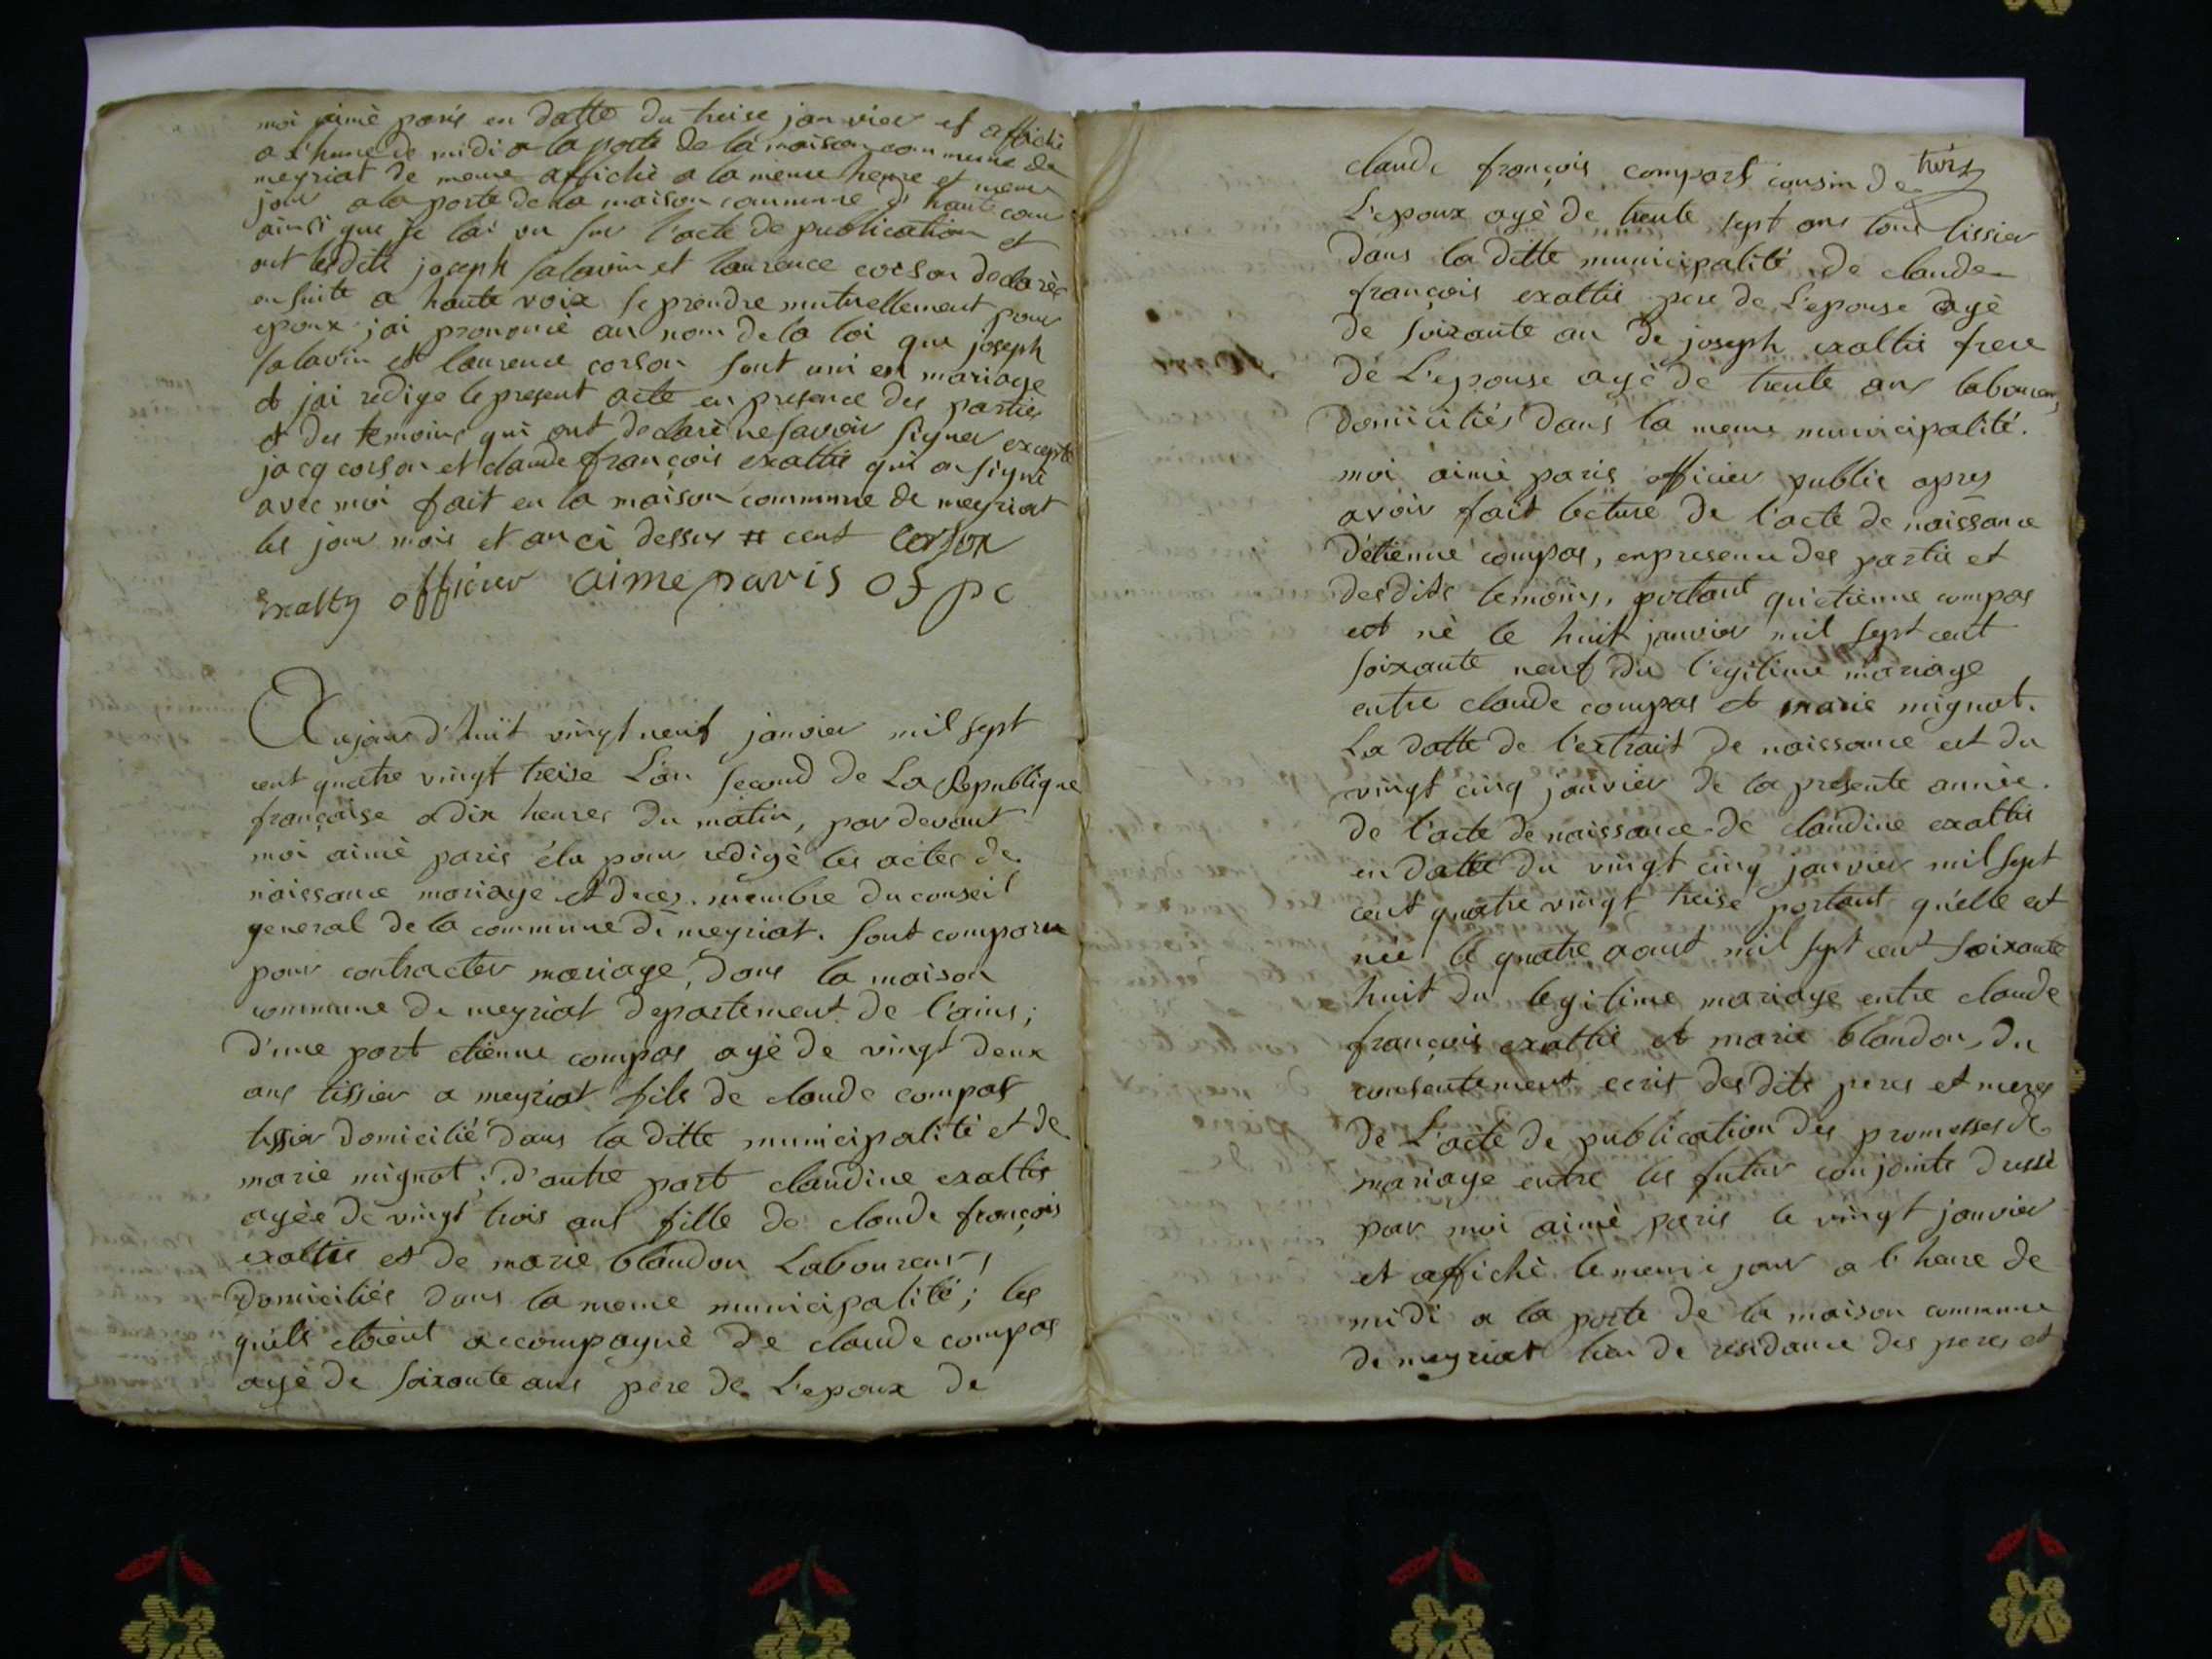 moi aimè paris en datte du treise janvier et affiché
a l'heure de midi a la porte de la maison commune de
meyriat de meme affichè a la meme heure et meme
jour a la porte de la maison commune d'haute cour
ainsi que je lai vu sur l'acte de publication et
ont lesdits joseph salavin et laurence corson declarès
ensuite a haute voix se prendre mutuellement pour
epoux jai prononcé au nom de la loi que joseph
salavin et laurence corson sont uni en mariage
et jai redige le present acte en presence des parties
et des temoins qui ont declarè ne savoir signer excepté
jacq corson et claude françois exaltis qui on signé
avec moi fait en la maison commune de meyriat
les jour mois et an ci dessus # cent corson
Exalty officier aime paris of pc
Aujourd'huit vingt neuf janvier mil sept
cent quatre vingt treise L'an second de La Republique
françoise a dix heures du matin, par devant
moi aimè paris élu pour redigè les actes de
naissance mariage et deces. membre du conseil
general de la commune de meyriat. sont comparu
pour contracter mariage, dans la maison
commune de meyriat departement de l'ains;
d'une part etienne compas agè de vingt deux
ans tissier a meyriat fils de claude compas
tissier domicilié dans la ditte municipalitè et de
marie mignot; d'autre part claudine exaltis
agèe de vingt trois ans fille de claude françois
exaltis et de marie blandon Laboureurs,
Domiciliés dans la meme municipalité; les
quels etoient accompagnè de claude compas
agè de soixante ans pere de L'epoux de
trois
claude françois compars cousin de
L'epoux agè de trente sept ans tous tissier
dans la ditte municipalité de claude
françois exaltis pere de L'epouse agè
de soixante an de joseph exaltis frere
de L'epouse agè de trente ans laboureurs
domiciliés dans la meme municipalité.
moi aimé paris officier public apres
avoir fait lecture de l'acte de naissance
d'étienne compas, en presence des partie et
desdits temoins, portant qu'etienne compas
est nè le huit janvier mil sept cent
soixante neuf du legitime mariage
entre claude compas et marie mignot.
La datte de l'extrait de naissance est du
vingt cinq janvier de la presente année.
de l'acte de naissance de claudine exaltis
en datte du vingt cinq janvier mil sept
cent quatre vingt treise portant qu'elle est
née le quatre aoust mil sept cent soixante
huit du legitime mariage entre claude
françois exaltis et marie blandon, du
consentement ecrit desdits peres et meres
de L'acte de publication des promesses de
mariage entre les futur conjoints dressé
par moi aimè paris le vingt janvier
et affichè le meme jour a l'heure de
midi a la porte de la maison commune
de meyriat lieu de residance des peres et